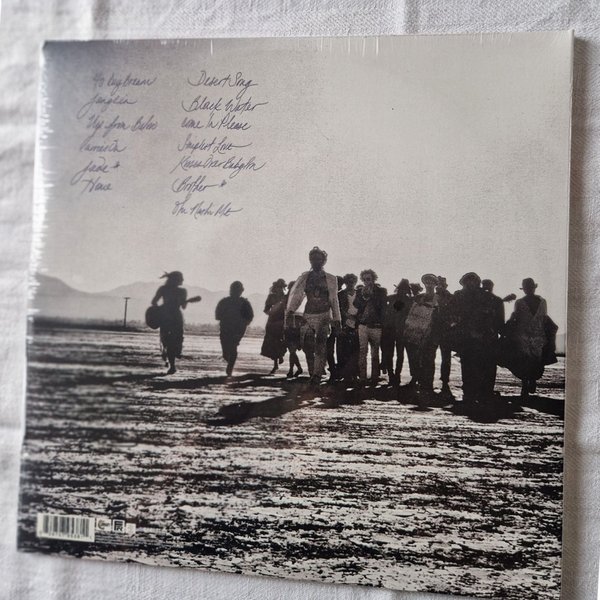 40 Day Dream
Janglin
Up from Below
Carries On
Jade
Home
Desert Song
Black Water
Come in Please
Simplest Love
Kisses Over Babylon
Brother
Om Nashi Me